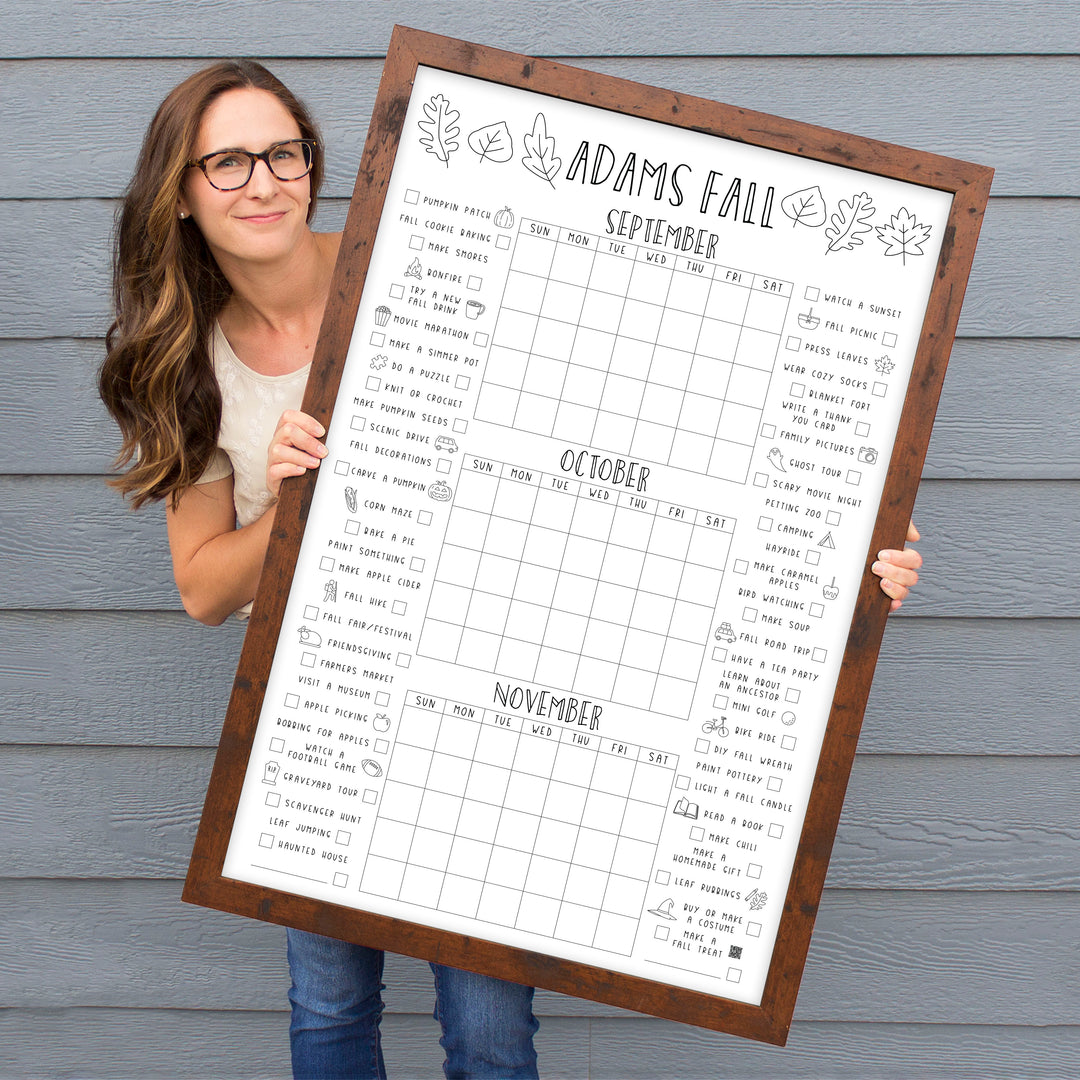 ADAMS FALL
PUMPKIN PATCH
FALL COOKIE BAKING
MAKE SMORES
BONFIRE
TRY A NEW
FALL DRINK
MOVIE MARATHON
MAKE A SIMMER POT
DO A PUZZLE
KNIT OR CROCHET
MAKE PUMPKIN SEEDS
SCENIC DRIVE
FALL DECORATIONS
CARVE A PUMPKIN
CORN MAZE
BAKE A PIE
PAINT SOMETHING
MAKE APPLE CIDER
FALL HIKE
FALL FAIR/FESTIVAL
FRIENDSGIVING
FARMERS MARKET
VISIT A MUSEUM
APPLE PICKING
BOBBING FOR APPLES
WATCH A
FOOTBALL GAME
RIP
GRAVEYARD TOUR
SCAVENGER HUNT
LEAF JUMPING
HAUNTED HOUSE
SEPTEMBER
SUN MON TUE WED THU FRI SAT
OCTOBER
SUN MON TUE WED THU FRI SAT
NOVEMBER
SUN MON TUE WED THU FRI SAT
WATCH A SUNSET
FALL PICNIC
PRESS LEAVES
WEAR COZY SOCKS
BLANKET FORT
WRITE A THANK
YOU CARD
FAMILY PICTURES
GHOST TOUR
SCARY MOVIE NIGHT
PETTING ZOO
CAMPING
HAYRIDE
MAKE CARAMEL
APPLES
BIRD WATCHING
MAKE SOUP
FALL ROAD TRIP
HAVE A TEA PARTY
LEARN ABOUT
AN ANCESTOR
MINI GOLF
BIKE RIDE
DIY FALL WREATH
PAINT POTTERY
LIGHT A FALL CANDLE
READ A BOOK
MAKE CHILI
MAKE A
HOMEMADE GIFT
LEAF RUBBINGS
BUY OR MAKE
A COSTUME
MAKE A
FALL TREAT